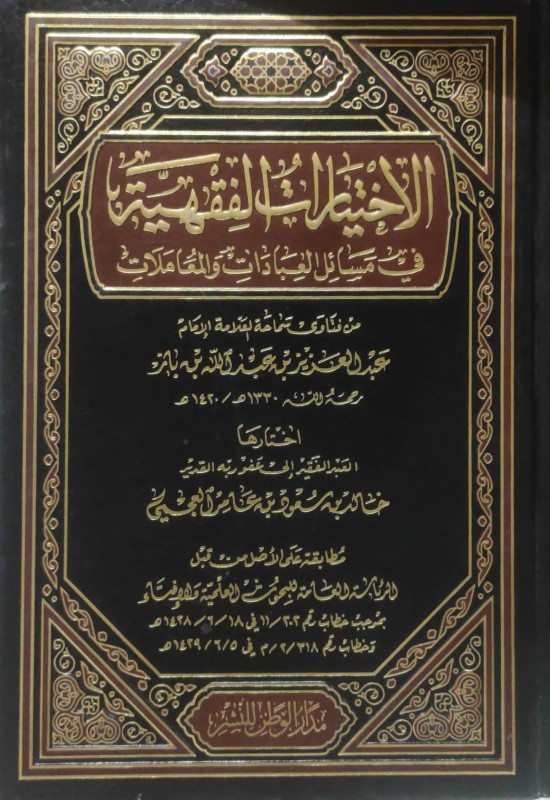 الاختيارات الفقهية
في مسائل العبادات والمعاملات
من فتاوى سماحة العلامة الإمام
عبد العزيز بن عبد الله بن باز
رحمه الله ١٣٣٠هـ / ١٤٢٠هـ
اختارها
العبد الفقير إلى عفو ربه القدير
خالد بن سعود بن عامر العجمي
مطابقة على الأصل من قبل
الرئاسة العامة للبحوث العلمية والإفتاء
بموجب خطاب رقم ١١/٢٠٢ في ١٨/ ٦/ ١٤٢٨هـ
وخطاب رقم ٣١٨/ ٢/ م في ٥/ ٦/ ١٤٢٩هـ
مدار الوطن للنشر